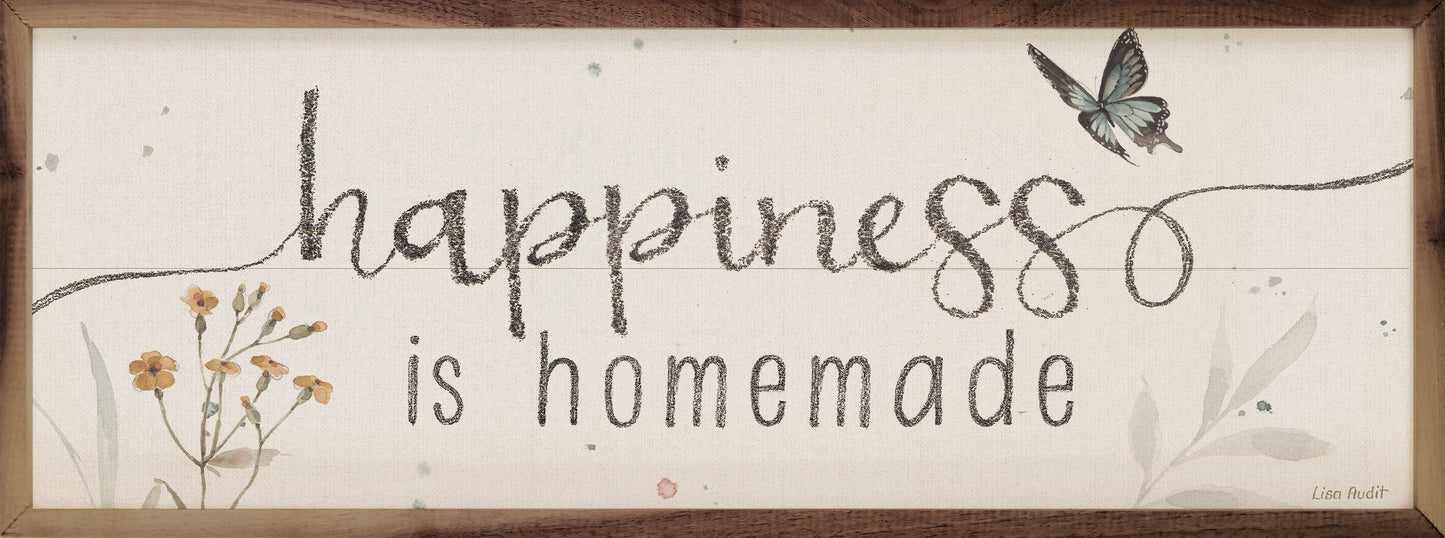 happiness
is homemade
Lisa Audit